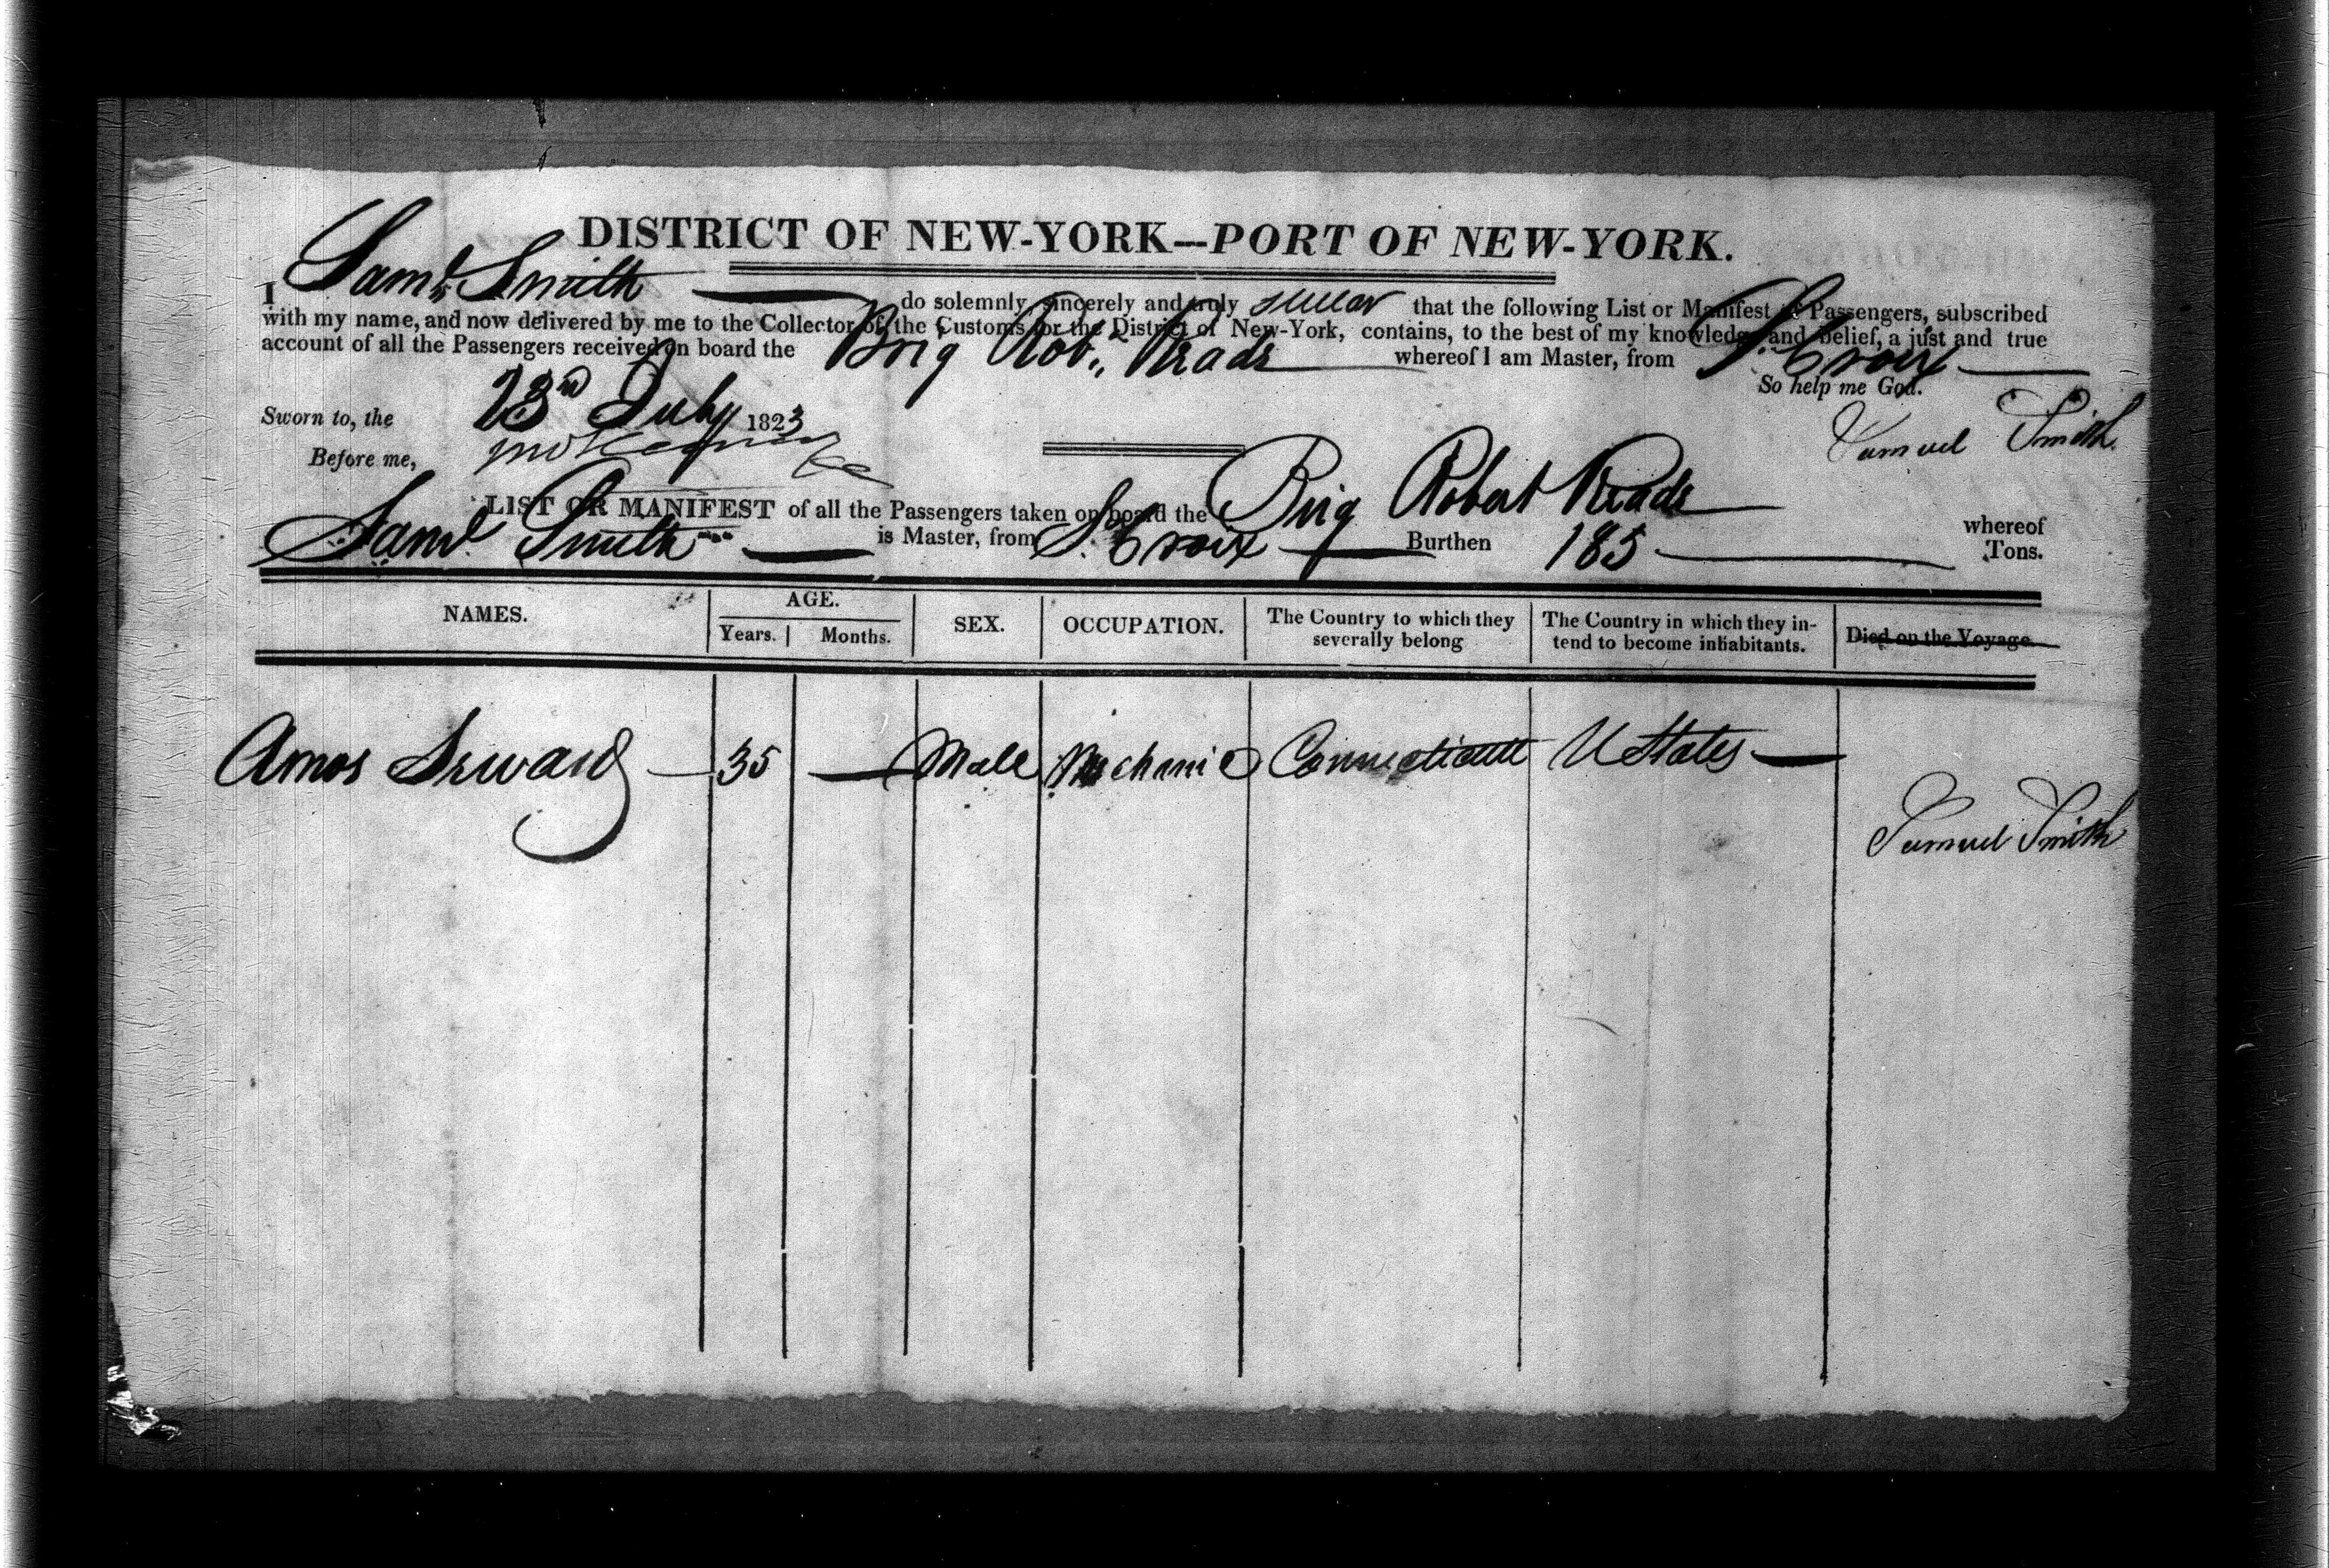 DISTRICT OF NEW-YORK—PORT OF NEW-YORK.
I Saml. Smith do solemnly, sincerely and truly swear that the following List or Manifest of Passengers, subscribed
with my name, and now delivered by me to the Collector of the Customs for the District of New-York, contains, to the best of my knowledge and belief, a just and true
account of all the Passengers received on board the Brig Robt. Reade whereof I am Master, from St. Croix
So help me God.
Sworn to, the 23rd July 1823
Samuel Smith
Before me,
LIST OR MANIFEST of all the Passengers taken on board the Brig Robert Reade whereof
Saml. Smith is Master, from St. Croix Burthen 185 Tons.
NAMES. AGE. Years. Months. SEX. OCCUPATION. The Country to which they severally belong The Country in which they intend to become inhabitants. Died on the Voyage.
Amos Seward 35 Male Mechanic Connecticutt U States
Samuel Smith